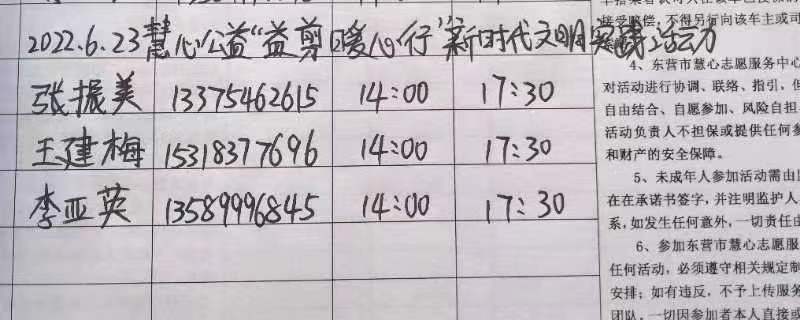 2022.6.23慧心公益“益剪暖心行”新时代文明实践活动
张振美 13375462615 14:00 17:30
王建梅 15318377696 14:00 17:30
李亚英 13589996845 14:00 17:30
接受赔偿,不得另行向该车主或司
4、东营市慧心志愿服务中心
对活动进行协调、联络、指引,但
自由结合、自愿参加、风险自担
活动负责人不担保或提供任何参
和财产的安全保障。
5、未成年人参加活动需由
在在承诺书签字,并注明监护人
系,如发生任何意外,一切责任由
6、参加东营市慧心志愿服
任何活动,必须遵守相关规定制
安排;如有违反,不予上传服务
团队,一切因参加者本人直接或